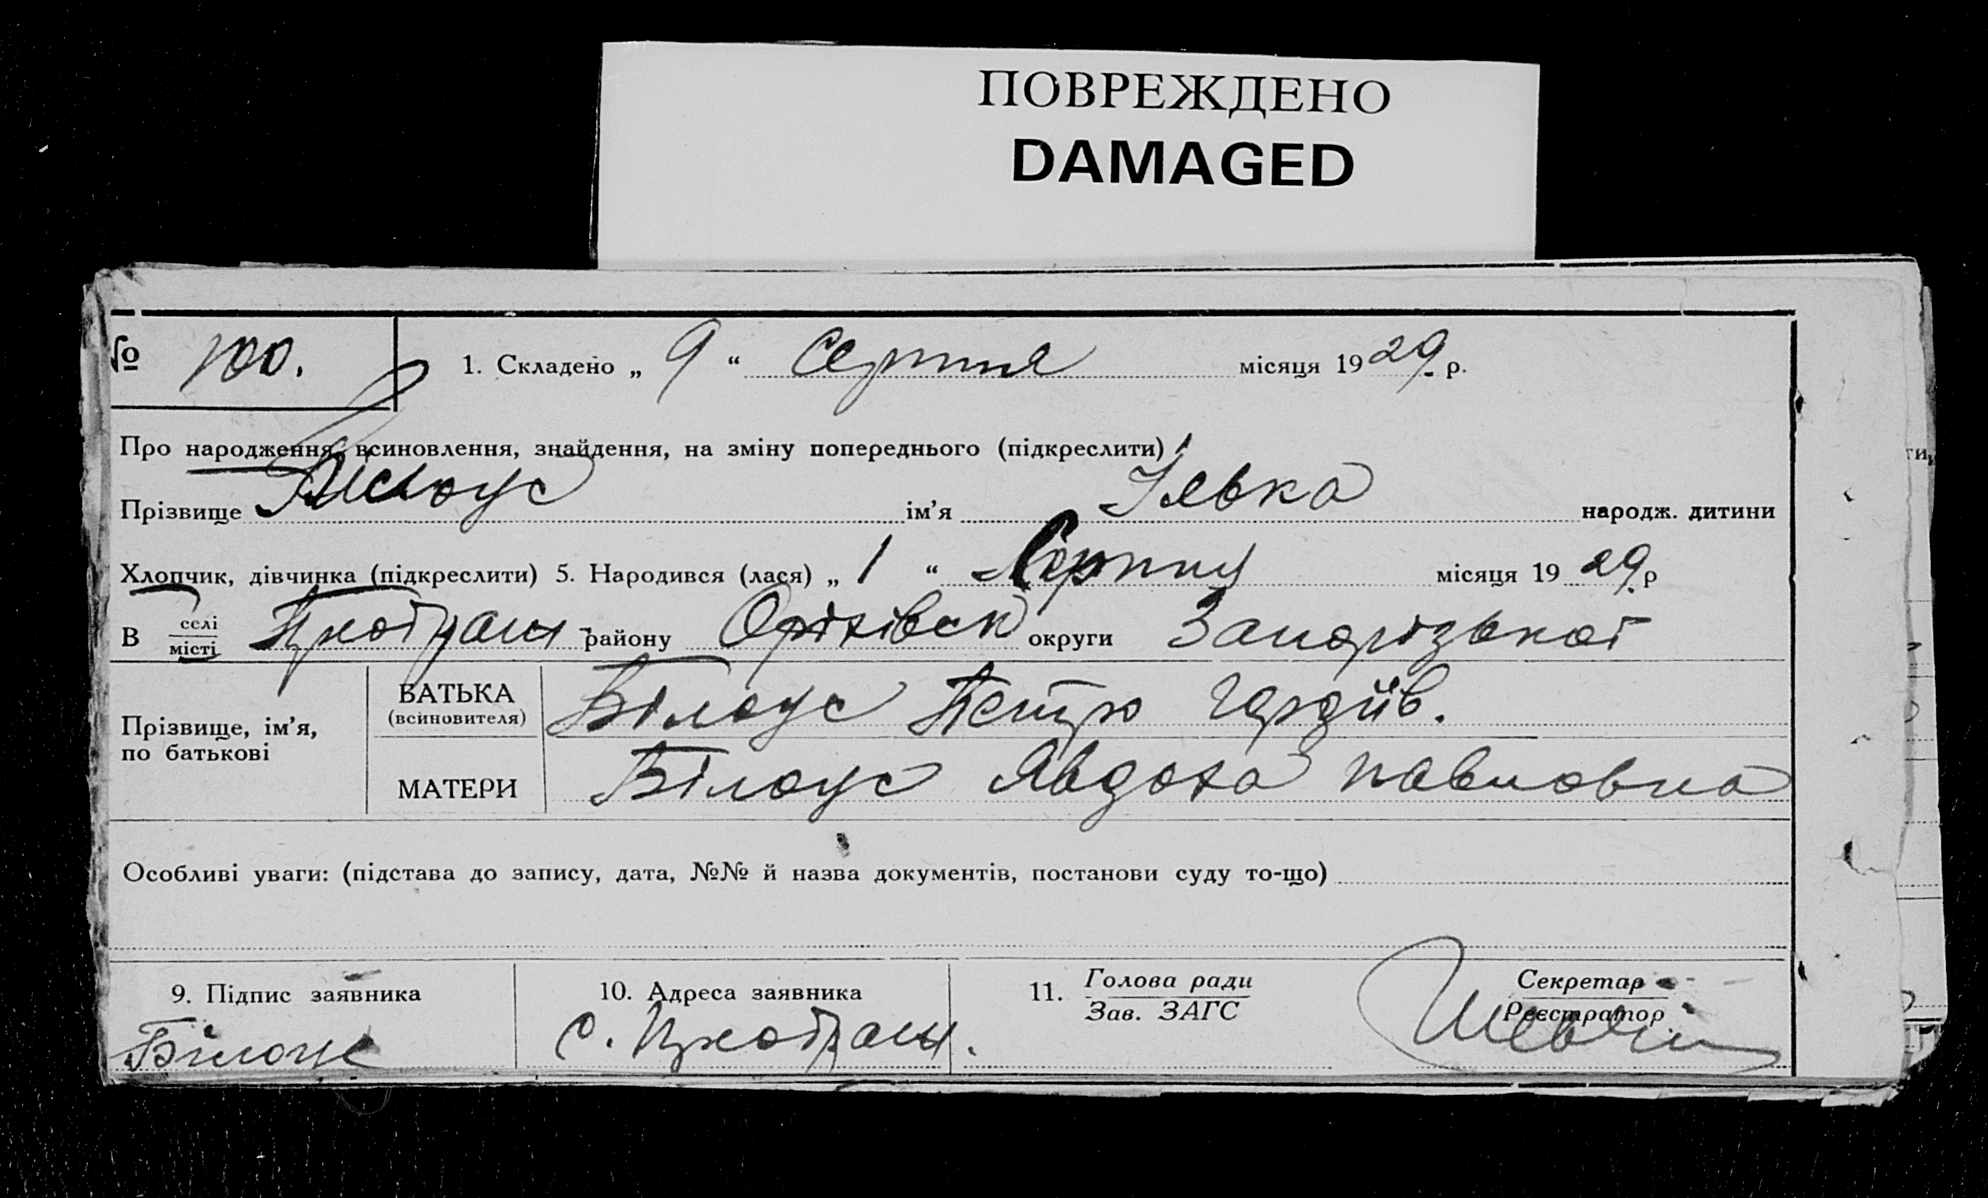 ПОВРЕЖДЕНО
DAMAGED
№ 100. 1. Складено „ 9 “ Серпня місяця 1929 р.
Про народження, всиновлення, знайдення, на зміну попереднього (підкреслити)
Прізвище Білоус ім’я Ілько народж. дитини
Хлопчик, дівчинка (підкреслити) 5. Народився (лася) „ 1 “ Серпня місяця 1929 р
В селі місті району Оріхівськ округи Запорізької
Прізвище, ім’я, по батькові
БАТЬКА (всиновителя) Білоус Петро Гордіїв.
МАТЕРИ Білоус Явдоха Павловна
Особливі уваги: (підстава до запису, дата, №№ й назва документів, постанови суду то-що)
9. Підпис заявника 10. Адреса заявника 11. Голова ради Зав. ЗАГС Секретар Реєстратор
Білоус с.